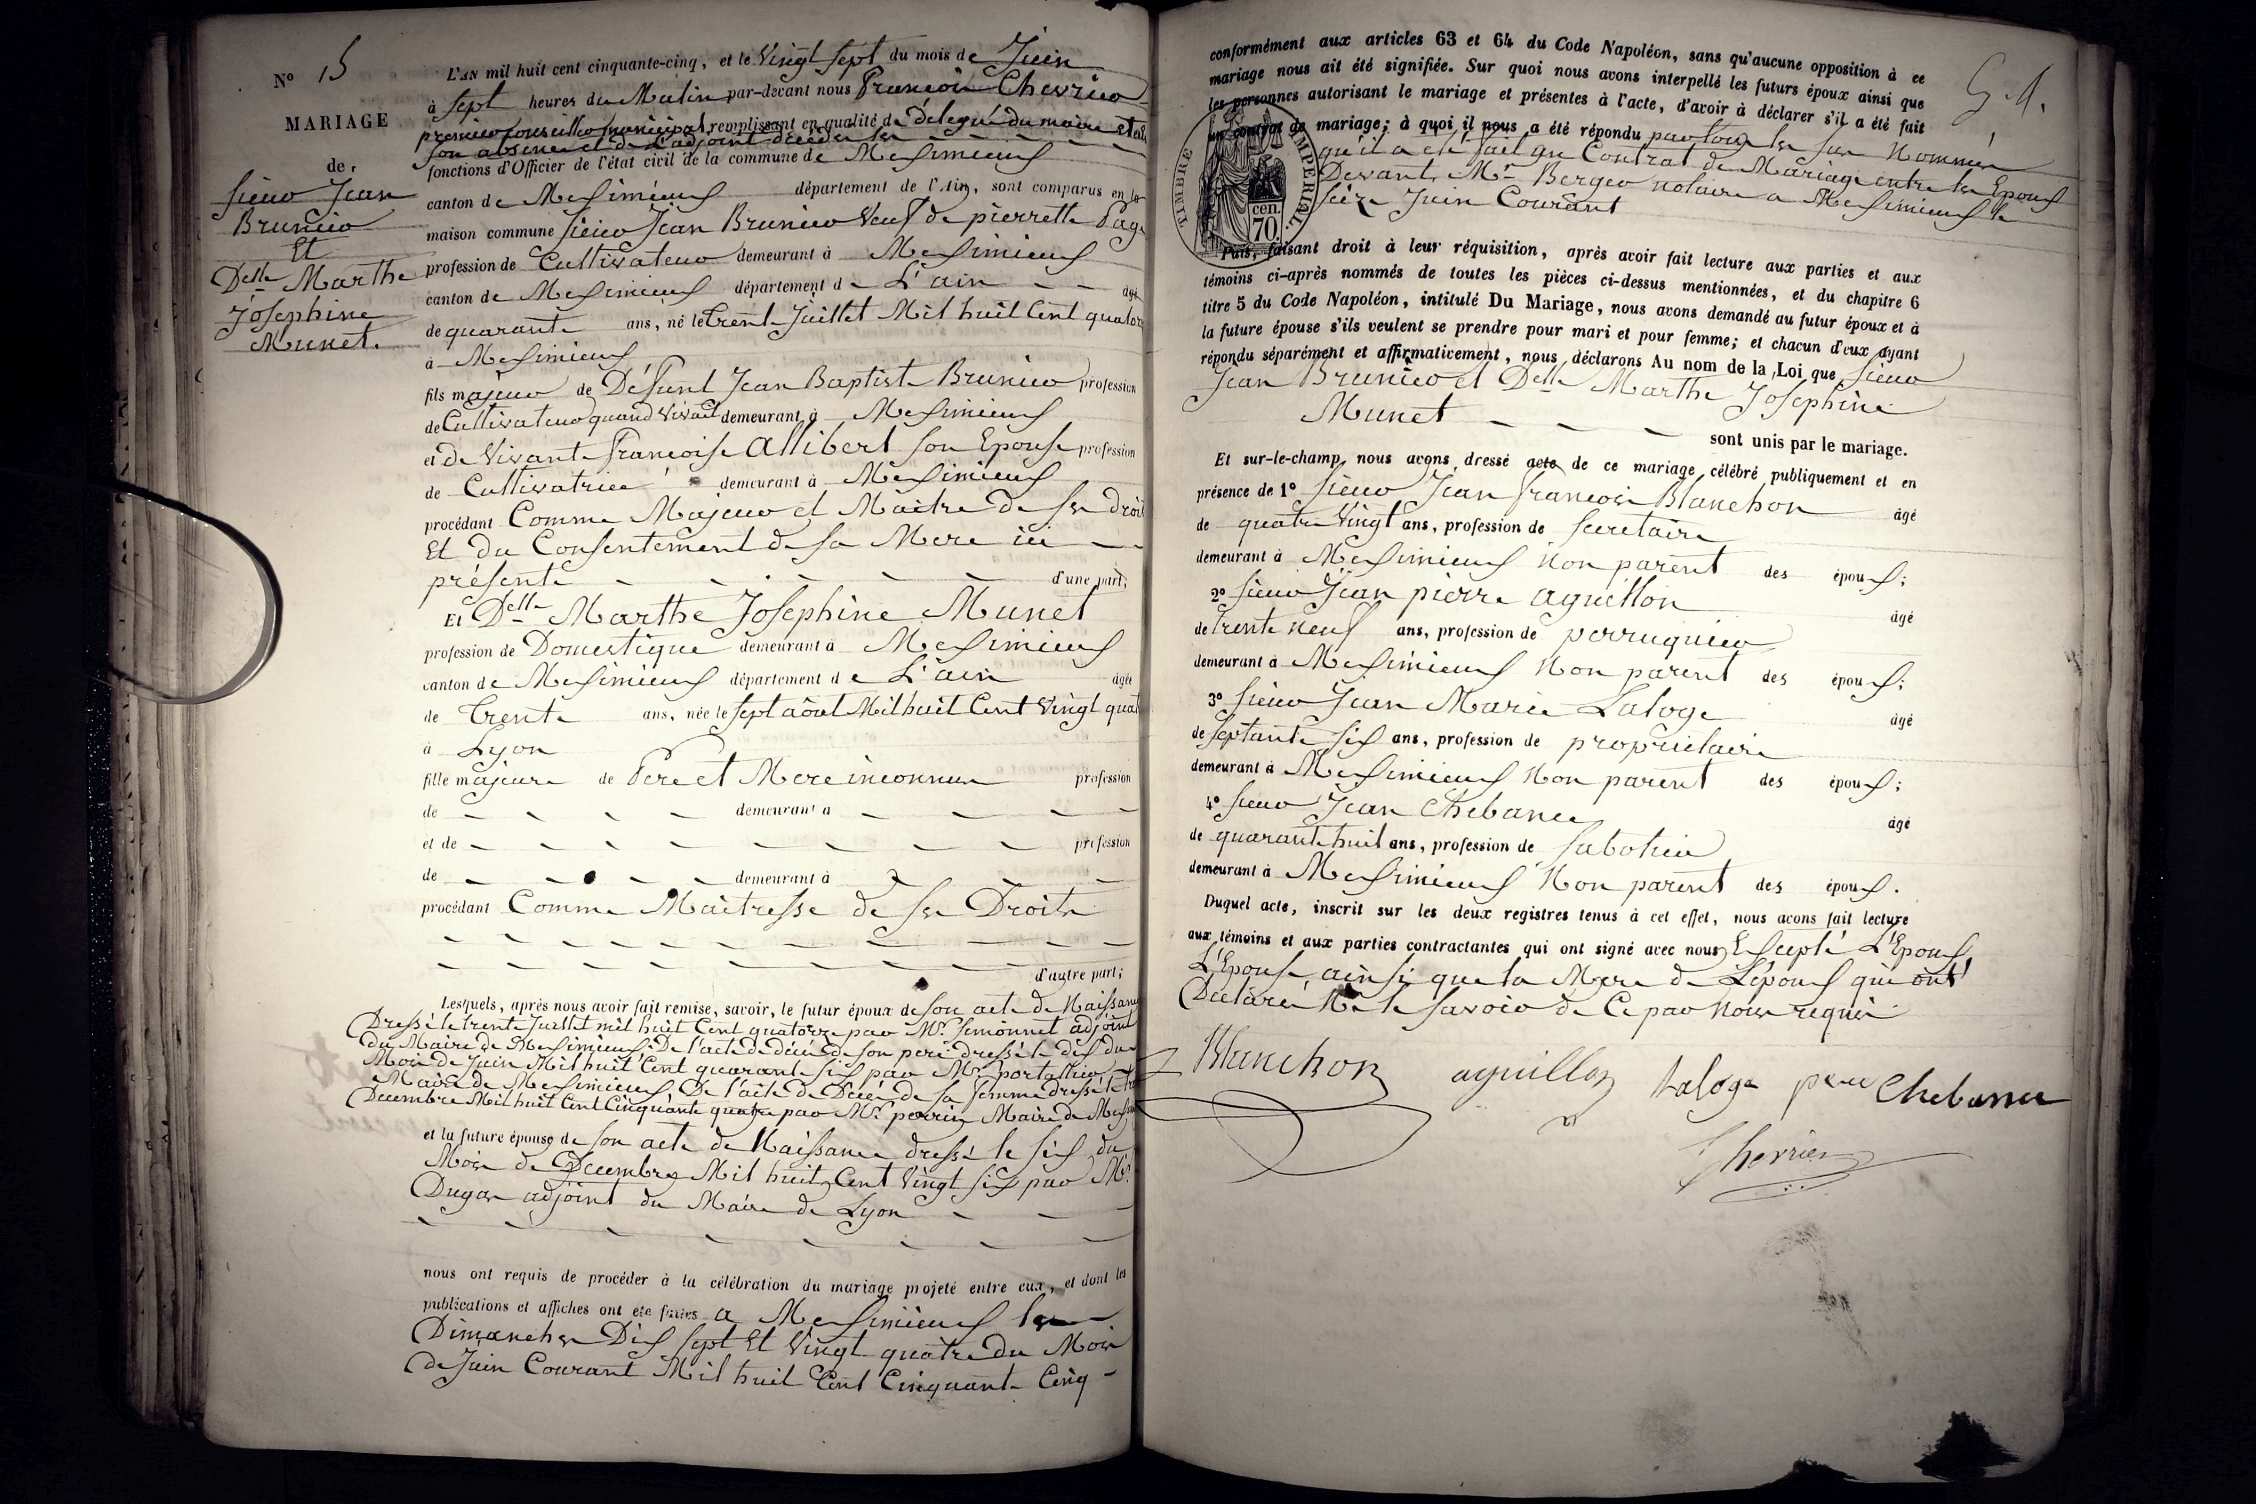 N° 15
MARIAGE
de
sieur Jean
Brunier
Et
Delle Marthe
Josephine
Munet.
L'AN mil huit cent cinquante-cinq, et le Vingt sept du mois de Juin
à sept heures du Matin par-devant nous Francois Chevrier
premier conseiller municipal, remplissant en qualité de délégué du maire
son absence et de L'adjoint décédé les
fonctions d'Officier de l'état civil de la commune de Meximieux
canton de Meximieux département de l'Ain, sont comparus en la
maison commune sieur Jean Brunier Veuf de pierrette Page
profession de Cultivateur demeurant à Meximieux
canton de Meximieux département de L'ain âgé
de quarante ans, né le trente Juillet Mil huit Cent quatorze
à Meximieux
fils majeur de Défunt Jean Baptiste Brunier profession
de Cultivateur quand vivait demeurant à Meximieux
et de Vivante Francoise Allibert son Epouse profession
de Cultivatrice demeurant à Meximieux
procédant Comme Majeur et Maitre de ses droits
Et du Consentement de sa Mere ici
présente d'une part;
Et Delle Marthe Josephine Munet
profession de Domestique demeurant à Meximieux
canton de Meximieux département de L'ain âgée
de trente ans, née le sept août Mil huit Cent Vingt quatre
à Lyon
fille majeure de Pere et Mere inconnus profession
de demeurant à
et de profession
de demeurant à
procédant Comme Maitresse de ses Droits
d'autre part;
Lesquels, après nous avoir fait remise, savoir, le futur époux de son acte de Naissance
Dressé le trente Juillet mil huit Cent quatorze par Mr. Simonnet adjoint
du Maire de Meximieux. De l'acte de décès de son pere dressé le dix du
Mois de Juin Mil huit Cent quarante six par Mr portallier
Maire de Meximieux De l'acte de Décès de sa femme dressé le
Decembre Mil huit Cent Cinquante quatre par Mr. perrin Maire de Meximieux
et la future épouse de son acte de Naissance dressé le six du
Mois de Decembre Mil huit Cent Vingt six par Mr.
Dugas adjoint du Maire de Lyon
nous ont requis de procéder à la célébration du mariage projeté entre eux, et dont les
publications et affiches ont été faites a Meximieux les
Dimanches Dix sept Et Vingt quatre du Mois
de Juin Courant Mil huit Cent Cinquante Cinq
conformément aux articles 63 et 64 du Code Napoléon, sans qu'aucune opposition à ce
mariage nous ait été signifiée. Sur quoi nous avons interpellé les futurs époux ainsi que
les personnes autorisant le mariage et présentes à l'acte, d'avoir à déclarer s'il a été fait
un contrat de mariage; à quoi il nous a été répondu par tous les sus Nommés
qu'il a été fait un Contrat de Mariage entre les Epoux
Devant Mr Berger notaire a Meximieux le
seize Juin Courant
TIMBRE IMPERIAL.
cen.
70.
Puis, faisant droit à leur réquisition, après avoir fait lecture aux parties et aux
témoins ci-après nommés de toutes les pièces ci-dessus mentionnées, et du chapitre 6
titre 5 du Code Napoléon, intitulé Du Mariage, nous avons demandé au futur époux et à
la future épouse s'ils veulent se prendre pour mari et pour femme; et chacun d'eux ayant
répondu séparément et affirmativement, nous déclarons Au nom de la Loi que sieur
Jean Brunier et Delle Marthe Josephine
Munet
sont unis par le mariage.
Et sur-le-champ nous avons dressé acte de ce mariage célébré publiquement et en
présence de 1° sieur Jean Francois Blanchon âgé
de quatre Vingt ans, profession de secretaire
demeurant à Meximieux Non parent des époux;
2° sieur Jean pierre aguillon âgé
de trente neuf ans, profession de perruquier
demeurant à Meximieux Non parent des époux;
3° sieur Jean Marie Laloge âgé
de septante six ans, profession de propriétaire
demeurant à Meximieux Non parent des époux;
4° sieur Jean Chebance âgé
de quarante huit ans, profession de sabotier
demeurant à Meximieux Non parent des époux.
Duquel acte, inscrit sur les deux registres tenus à cet effet, nous avons fait lecture
aux témoins et aux parties contractantes qui ont signé avec nous Excepté L'Epoux
L'Epouse, ainsi que la Mere de L'époux qui ont
Déclaré Ne le savoir de Ce par Nous requis
Blanchon aguillon Laloge pere Chebance
Chevrier